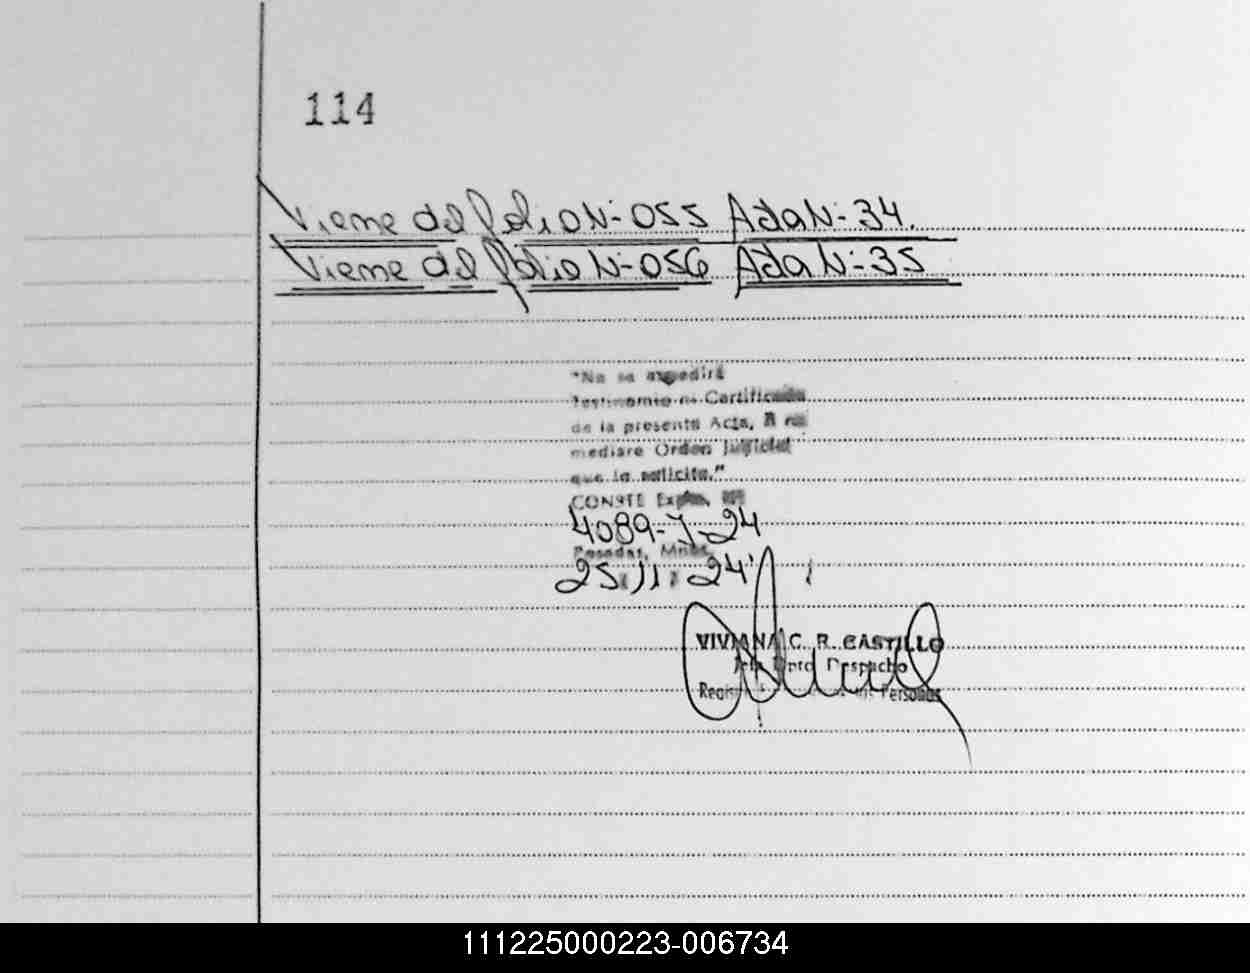 114
Viene del folio N- 055 Acta N- 34.
Viene del folio N- 056 Acta N- 35
"No se expedirá
Testimonio ni Certificado
de la presente Acta, si no
mediare Orden Judicial
que lo solicite."
CONSTE Expte. Nº
4089-J-24
Posadas, Mnes.
25 11 24
VIVIANA C. R. CASTILLO
Jefa Dpto Despacho
Personas
111225000223-006734